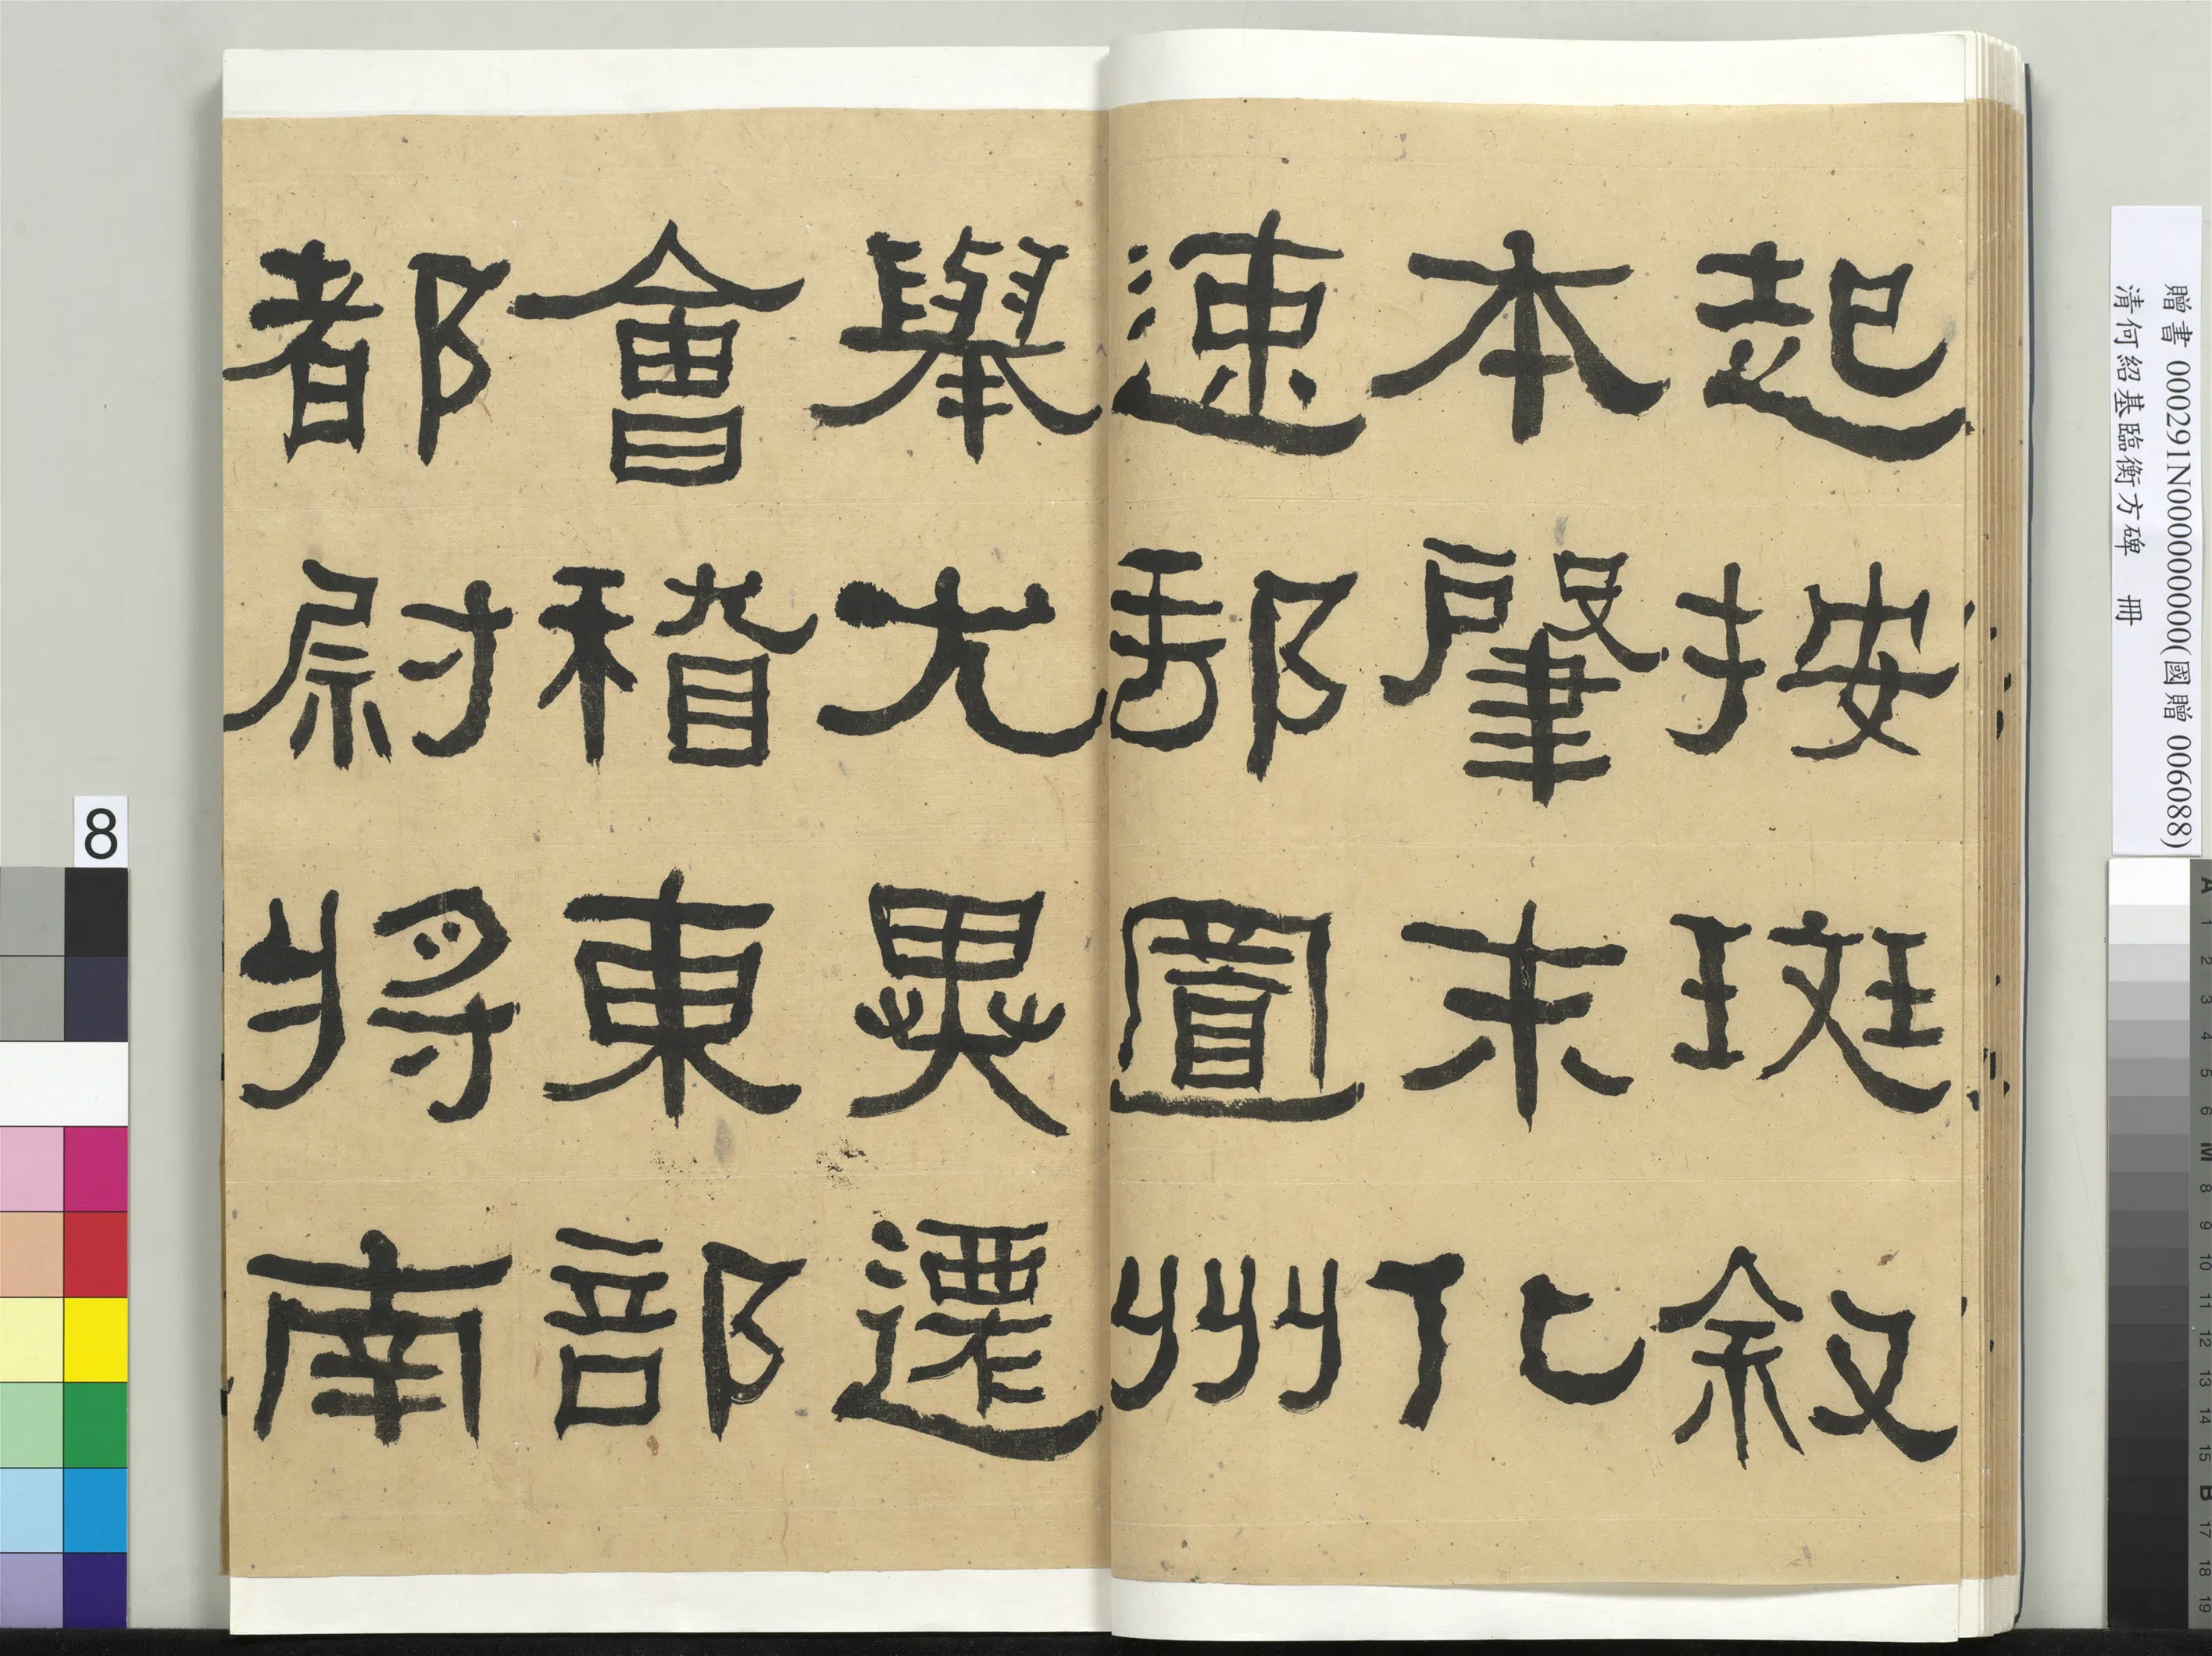 起按斑敘
本肇末化
速郵置州
舉尤異遷
會稽東部
都尉將南
贈書 000291N000000000(國贈 006088)
清何紹基臨衡方碑 冊
8
A 1 2 3 4 5 6 M 8 9 10 11 12 13 14 15 B 17 18 19